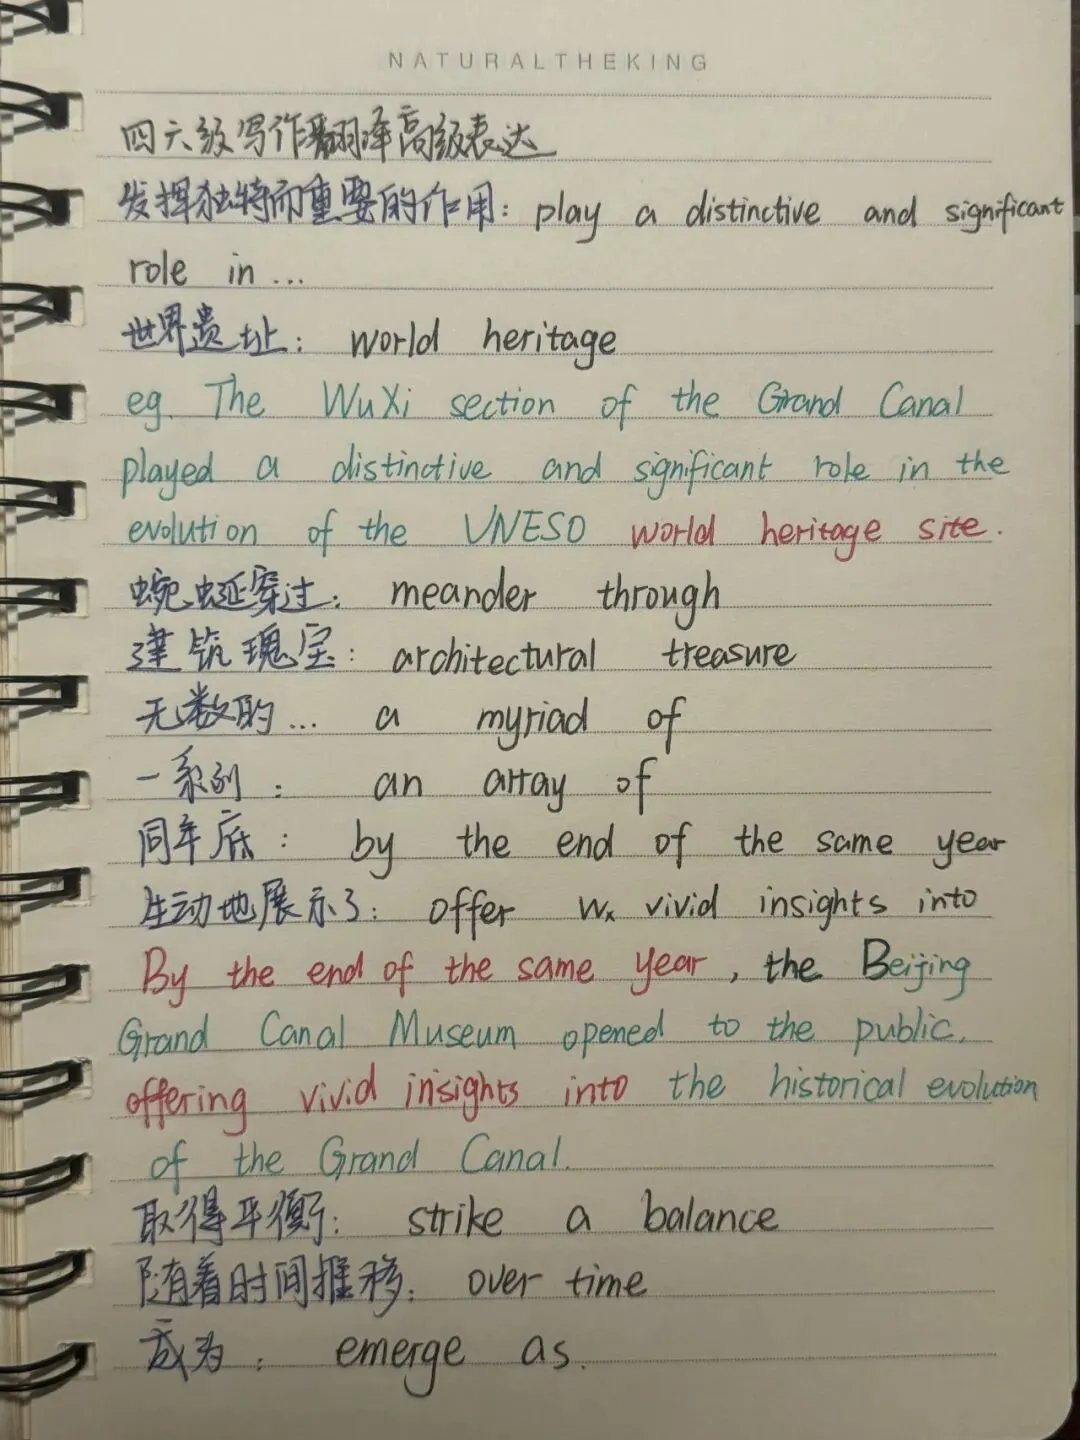 NATURALTHEKING
四六级写作翻译高级表达
发挥独特而重要的作用: play a distinctive and significant
role in ...
世界遗址: world heritage
eg. The WuXi section of the Grand Canal
played a distinctive and significant role in the
evolution of the UNESO world heritage site.
蜿蜒穿过: meander through
建筑瑰宝: architectural treasure
无数的... a myriad of
一系列: an array of
同年底: by the end of the same year
生动地展示了: offer vivid insights into
By the end of the same year, the Beijing
Grand Canal Museum opened to the public,
offering vivid insights into the historical evolution
of the Grand Canal.
取得平衡: strike a balance
随着时间推移: over time
成为: emerge as.